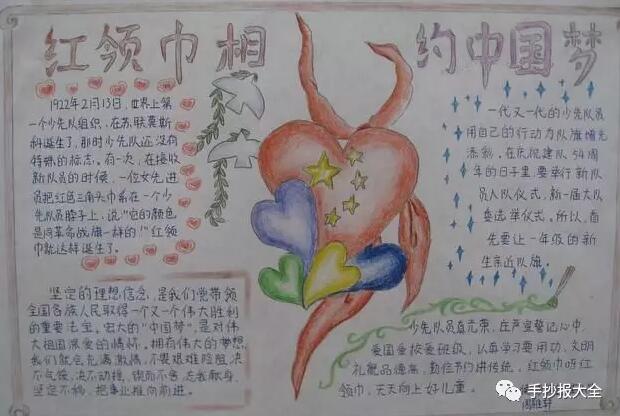 红领巾相
约中国梦
1922年2月13日,世界上第
一个少先队组织,在苏联莫斯
科诞生了,那时少先队还没有
特殊的标志,有一次,在接收
新队员的时候,一位女先进
员把红色三角头巾系在一个少
先队员脖子上,说"它的颜色
是同革命战旗一样的!"红领
巾就这样诞生了。
坚定的理想信念,是我们党带领
全国各族人民取得一个又一个伟大胜利
的重要法宝。宏大的"中国梦",是对伟
大祖国深爱的情怀。拥有伟大的梦想,
我们就能充满激情,不畏艰难险阻,决
不气馁,决不动摇,锲而不舍,忘我献身,
坚定不移,把事业推向前进。
一代又一代的少先队员
用自己的行动为队旗增光
添彩,在庆祝建队54周
年的日子里,要举行新队
员入队仪式,新一届大队
委选举仪式。所以,首
先要让一年级的新
生亲近队旗。
少先队员真光荣,庄严宣誓记心中,
爱国爱校爱班级,认真学习要用功,文明
礼貌品德高,勤俭节约讲传统,红领巾呀红
领巾,天天向上好儿童。
手抄报大全